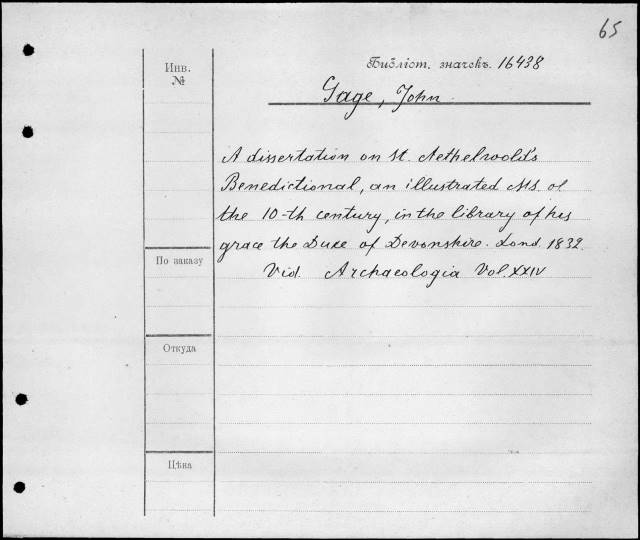 65
Инв.
№
Библіот. значекъ. 16438
Gage, John.
A dissertation on St. Aethelwold's
Benedictional, an illustrated MS. of
the 10-th century, in the library of his
grace the Duke of Devonshire. Lond. 1832.
Vid. Archaeologia Vol. XXIV
По заказу
Откуда
Цѣна